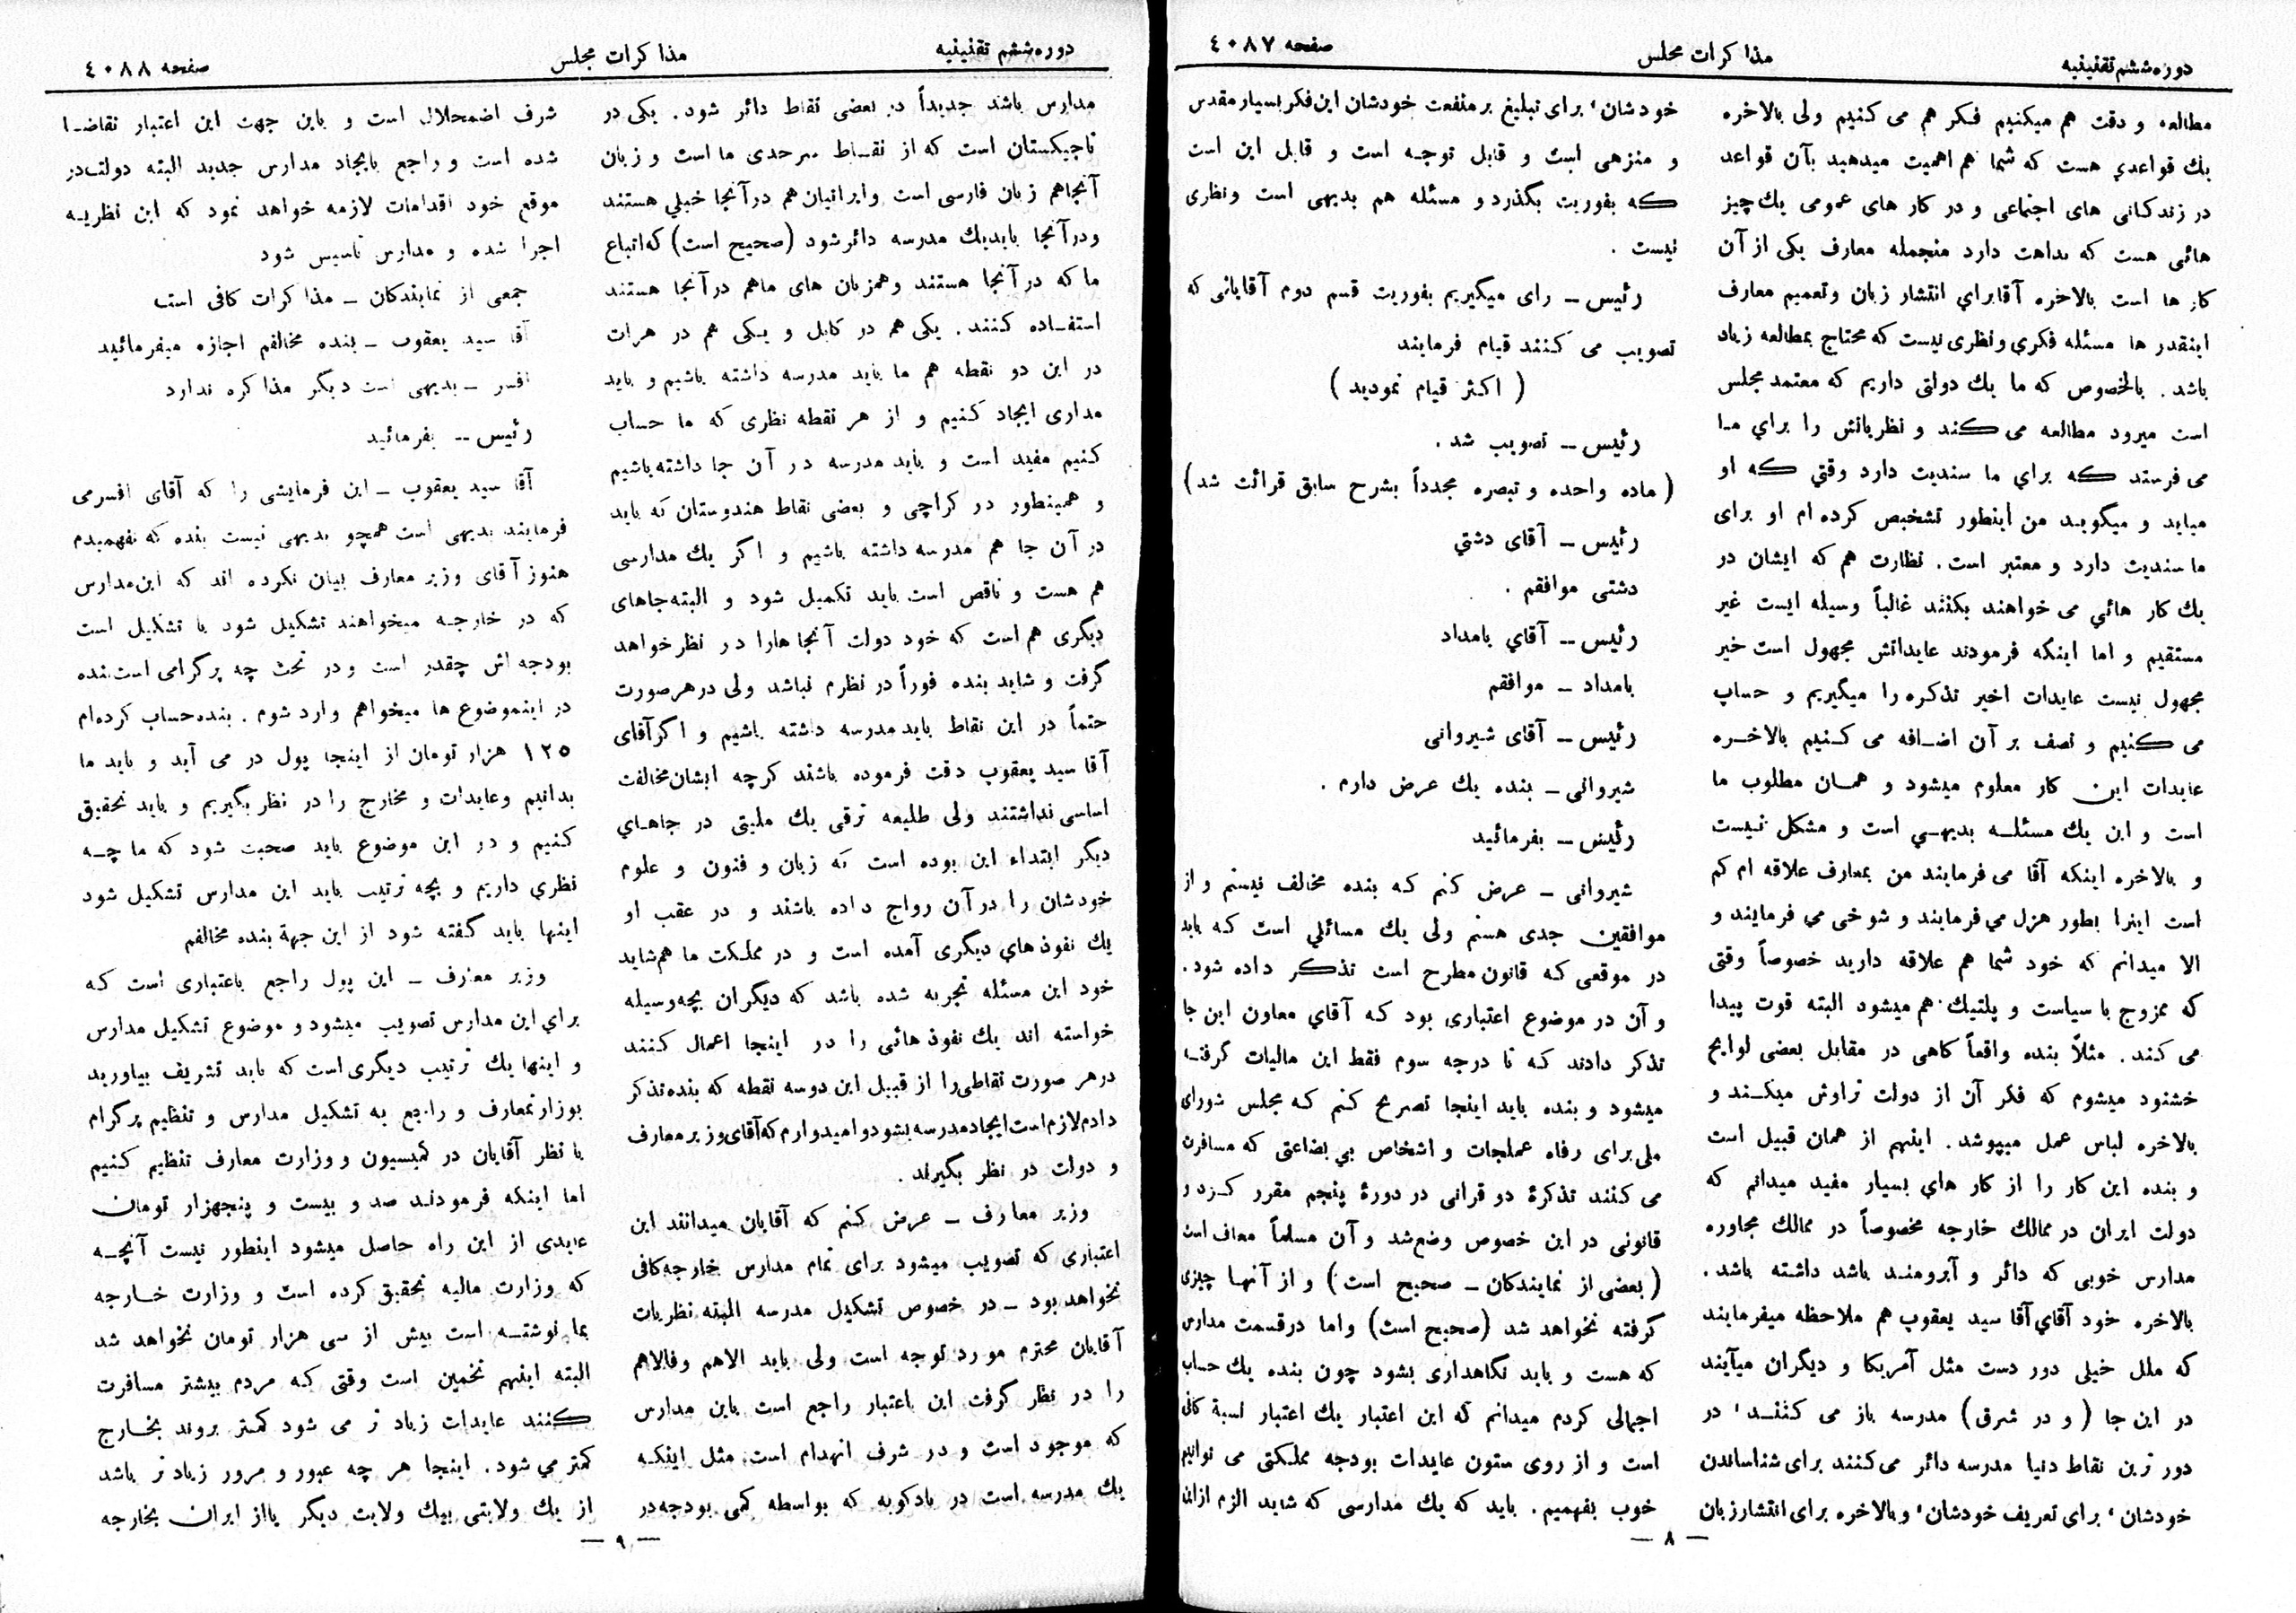 دوره ششم تقنینیه
مذاکرات مجلس
صفحه ٤٠٨٧
مطالعه و دقت هم میکنیم فکر هم می کنیم ولی بالاخره
یك قواعدی هست که شما هم اهمیت میدهید بآن قواعد
در زندگانی های اجتماعی و در کار های عمومی یك چیز
هائی هست که بداهت دارد منجمله معارف یکی از آن
کار ها است بالاخره آقا برای انتشار زبان و تعمیم معارف
اینقدر ها مسئله فکری و نظری نیست که محتاج بمطالعه زیاد
باشد . بالخصوص که ما یك دولتی داریم که معتمد مجلس
است میرود مطالعه می کند و نظریاتش را برای ما
می فرستد که برای ما سندیت دارد وقتی که او
میاید و میگوید من اینطور تشخیص کرده ام او برای
ما سندیت دارد و معتبر است . نظارت هم که ایشان در
یك کار هائی می خواهند بکنند غالباً وسیله ایست غیر
مستقیم و اما اینکه فرمودند عایداتش مجهول است خیر
مجهول نیست عایدات اخیر تذکره را میگیریم و حساب
می کنیم و نصف بر آن اضافه می کنیم بالاخره
عایدات این کار معلوم میشود و همان مطلوب ما
است و این یك مسئله بدیهی است و مشکل نیست
و بالاخره اینکه آقا می فرمایند من بمعارف علاقه ام کم
است اینرا بطور هزل می فرمایند و شوخی می فرمایند و
الا میدانم که خود شما هم علاقه دارید خصوصاً وقتی
که ممزوج با سیاست و پلتیك هم میشود البته قوت پیدا
می کند . مثلاً بنده واقعاً گاهی در مقابل بعضی لوایح
خشنود میشوم که فکر آن از دولت تراوش میکند و
بالاخره لباس عمل میپوشد . اینهم از همان قبیل است
و بنده این کار را از کار های بسیار مفید میدانم که
دولت ایران در ممالك خارجه مخصوصاً در ممالك مجاوره
مدارس خوبی که دائر و آبرومند باشد داشته باشد .
بالاخره خود آقای آقا سید یعقوب هم ملاحظه میفرمایند
که ملل خیلی دور دست مثل آمریکا و دیگران میآیند
در این جا ( و در شرق ) مدرسه باز می کنند ' در
دور ترین نقاط دنیا مدرسه دائر می کنند برای شناساندن
خودشان ' برای تعریف خودشان ' و بالاخره برای انتشار زبان
خودشان ' برای تبلیغ بر منفعت خودشان این فکر بسیار مقدس
و منزهی است و قابل توجه است و قابل این است
که بفوریت بگذرد و مسئله هم بدیهی است و نظری
نیست .
رئیس ــ رای میگیریم بفوریت قسم دوم آقایانی که
تصویب می کنند قیام فرمایند
( اکثر قیام نمودند )
رئیس ــ تصویب شد .
( ماده واحده و تبصره مجدداً بشرح سابق قرائت شد )
رئیس ــ آقای دشتی
دشتی موافقم .
رئیس ــ آقای یامداد
یامداد ــ موافقم
رئیس ــ آقای شیروانی
شیروانی ــ بنده یك عرض دارم .
رئیس ــ بفرمائید
شیروانی ــ عرض کنم که بنده مخالف نیستم و از
موافقین جدی هستم ولی یك مسائلی است که باید
در موقعی که قانون مطرح است تذکر داده شود .
و آن در موضوع اعتباری بود که آقای معاون این جا
تذکر دادند که تا درجه سوم فقط این مالیات گرفته
میشود و بنده باید اینجا تصریح کنم که مجلس شورای
ملی برای رفاه عملجات و اشخاص بی بضاعتی که مسافرت
می کنند تذکرهٔ دو قرانی در دورهٔ پنجم مقرر کرد و
قانونی در این خصوص وضع شد و آن مسلماً معاف است
( بعضی از نمایندگان ــ صحیح است ) و از آنها چیزی
گرفته نخواهد شد ( صحیح است ) و اما در قسمت مدارس
که هست و باید نگاهداری بشود چون بنده یك حساب
اجمالی کردم میدانم که این اعتبار یك اعتبار نسبة کافی
است و از روی ستون عایدات بودجه مملکتی می توانیم
خوب بفهمیم . باید که یك مدارسی که شاید الزم از این
ــ ۸ ــ
دوره ششم تقنینیه
مذاکرات مجلس
صفحه ٤٠٨٨
مدارس باشد جدیداً در بعضی نقاط دائر شود . یکی در
تاجیکستان است که از نقاط سرحدی ما است و زبان
آنجا هم زبان فارسی است و ایرانیان هم در آنجا خیلی هستند
و در آنجا باید یك مدرسه دائر شود ( صحیح است ) که اتباع
ما که در آنجا هستند و همزبان های ما هم در آنجا هستند
استفاده کنند . یکی هم در کابل و یکی هم در هرات
در این دو نقطه هم ما باید مدرسه داشته باشیم و باید
مداری ایجاد کنیم و از هر نقطه نظری که ما حساب
کنیم مفید است و باید مدرسه در آن جا داشته باشیم
و همینطور در کراچی و بعضی نقاط هندوستان که باید
در آن جا هم مدرسه داشته باشیم و اگر یك مدارسی
هم هست و ناقص است باید تکمیل شود و البته جاهای
دیگری هم است که خود دولت آنجا ها را در نظر خواهد
گرفت و شاید بنده فوراً در نظرم نباشد ولی در هر صورت
حتماً در این نقاط باید مدرسه داشته باشیم و اگر آقای
آقا سید یعقوب دقت فرموده باشند گرچه ایشان مخالفت
اساسی نداشتند ولی طلیعه ترقی یك ملیتی در جاهای
دیگر ابتداء این بوده است که زبان و فنون و علوم
خودشان را در آن رواج داده باشند و در عقب او
یك نفوذ های دیگری آمده است و در مملکت ما هم شاید
خود این مسئله تجربه شده باشد که دیگران بچه وسیله
خواسته اند یك نفوذ هائی را در اینجا اعمال کنند
در هر صورت نقاطی را از قبیل این دو سه نقطه که بنده تذکر
دادم لازم است ایجاد مدرسه بشود و امیدوارم که آقای وزیر معارف
و دولت در نظر بگیرند .
وزیر معارف ــ عرض کنم که آقایان میدانند این
اعتباری که تصویب میشود برای تمام مدارس خارجه کافی
نخواهد بود ــ در خصوص تشکیل مدرسه البته نظریات
آقایان محترم مورد توجه است ولی باید الاهم و فالاهم
را در نظر گرفت این اعتبار راجع است باین مدارس
که موجود است و در شرف انهدام است مثل اینکه
یك مدرسه است در بادکوبه که بواسطه کمی بودجه در
شرف اضمحلال است و باین جهت این اعتبار تقاضا
شده است و راجع بایجاد مدارس جدید البته دولت در
موقع خود اقدامات لازمه خواهد نمود که این نظریه
اجرا شده و مدارس تاسیس شود
جمعی از نمایندگان ــ مذاکرات کافی است
آقا سید یعقوب ــ بنده مخالفم اجازه میفرمائید
افسر ــ بدیهی است دیگر مذاکره ندارد
رئیس ــ بفرمائید
آقا سید یعقوب ــ این فرمایشی را که آقای افسر می
فرمایند بدیهی است همچو بدیهی نیست بنده که نفهمیدم
هنوز آقای وزیر معارف بیان نکرده اند که این مدارس
که در خارجه میخواهند تشکیل شود یا تشکیل است
بودجه اش چقدر است و در تحت چه پرگرامی است بنده
در اینموضوع ها میخواهم وارد شوم . بنده حساب کرده ام
۱۲۵ هزار تومان از اینجا پول در می آید و باید ما
بدانیم و عایدات و مخارج را در نظر بگیریم و باید تحقیق
کنیم و در این موضوع باید صحبت شود که ما چه
نظری داریم و بچه ترتیب باید این مدارس تشکیل شود
اینها باید گفته شود از این جهة بنده مخالفم
وزیر معارف ــ این پول راجع باعتباری است که
برای این مدارس تصویب میشود و موضوع تشکیل مدارس
و اینها یك ترتیب دیگری است که باید تشریف بیاورید
بوزارتمعارف و راجع به تشکیل مدارس و تنظیم پرگرام
با نظر آقایان در کمیسیون و وزارت معارف تنظیم کنیم
اما اینکه فرمودند صد و بیست و پنجهزار تومان
عایدی از این راه حاصل میشود اینطور نیست آنچه
که وزارت مالیه تحقیق کرده است و وزارت خارجه
بما نوشته است بیش از سی هزار تومان نخواهد شد
البته اینهم تخمین است وقتی که مردم بیشتر مسافرت
کنند عایدات زیاد تر می شود کمتر بروند بخارج
کمتر می شود . اینجا هر چه عبور و مرور زیاد تر باشد
از یك ولایتی بیك ولایت دیگر یا از ایران بخارجه
ــ ۹ ــ